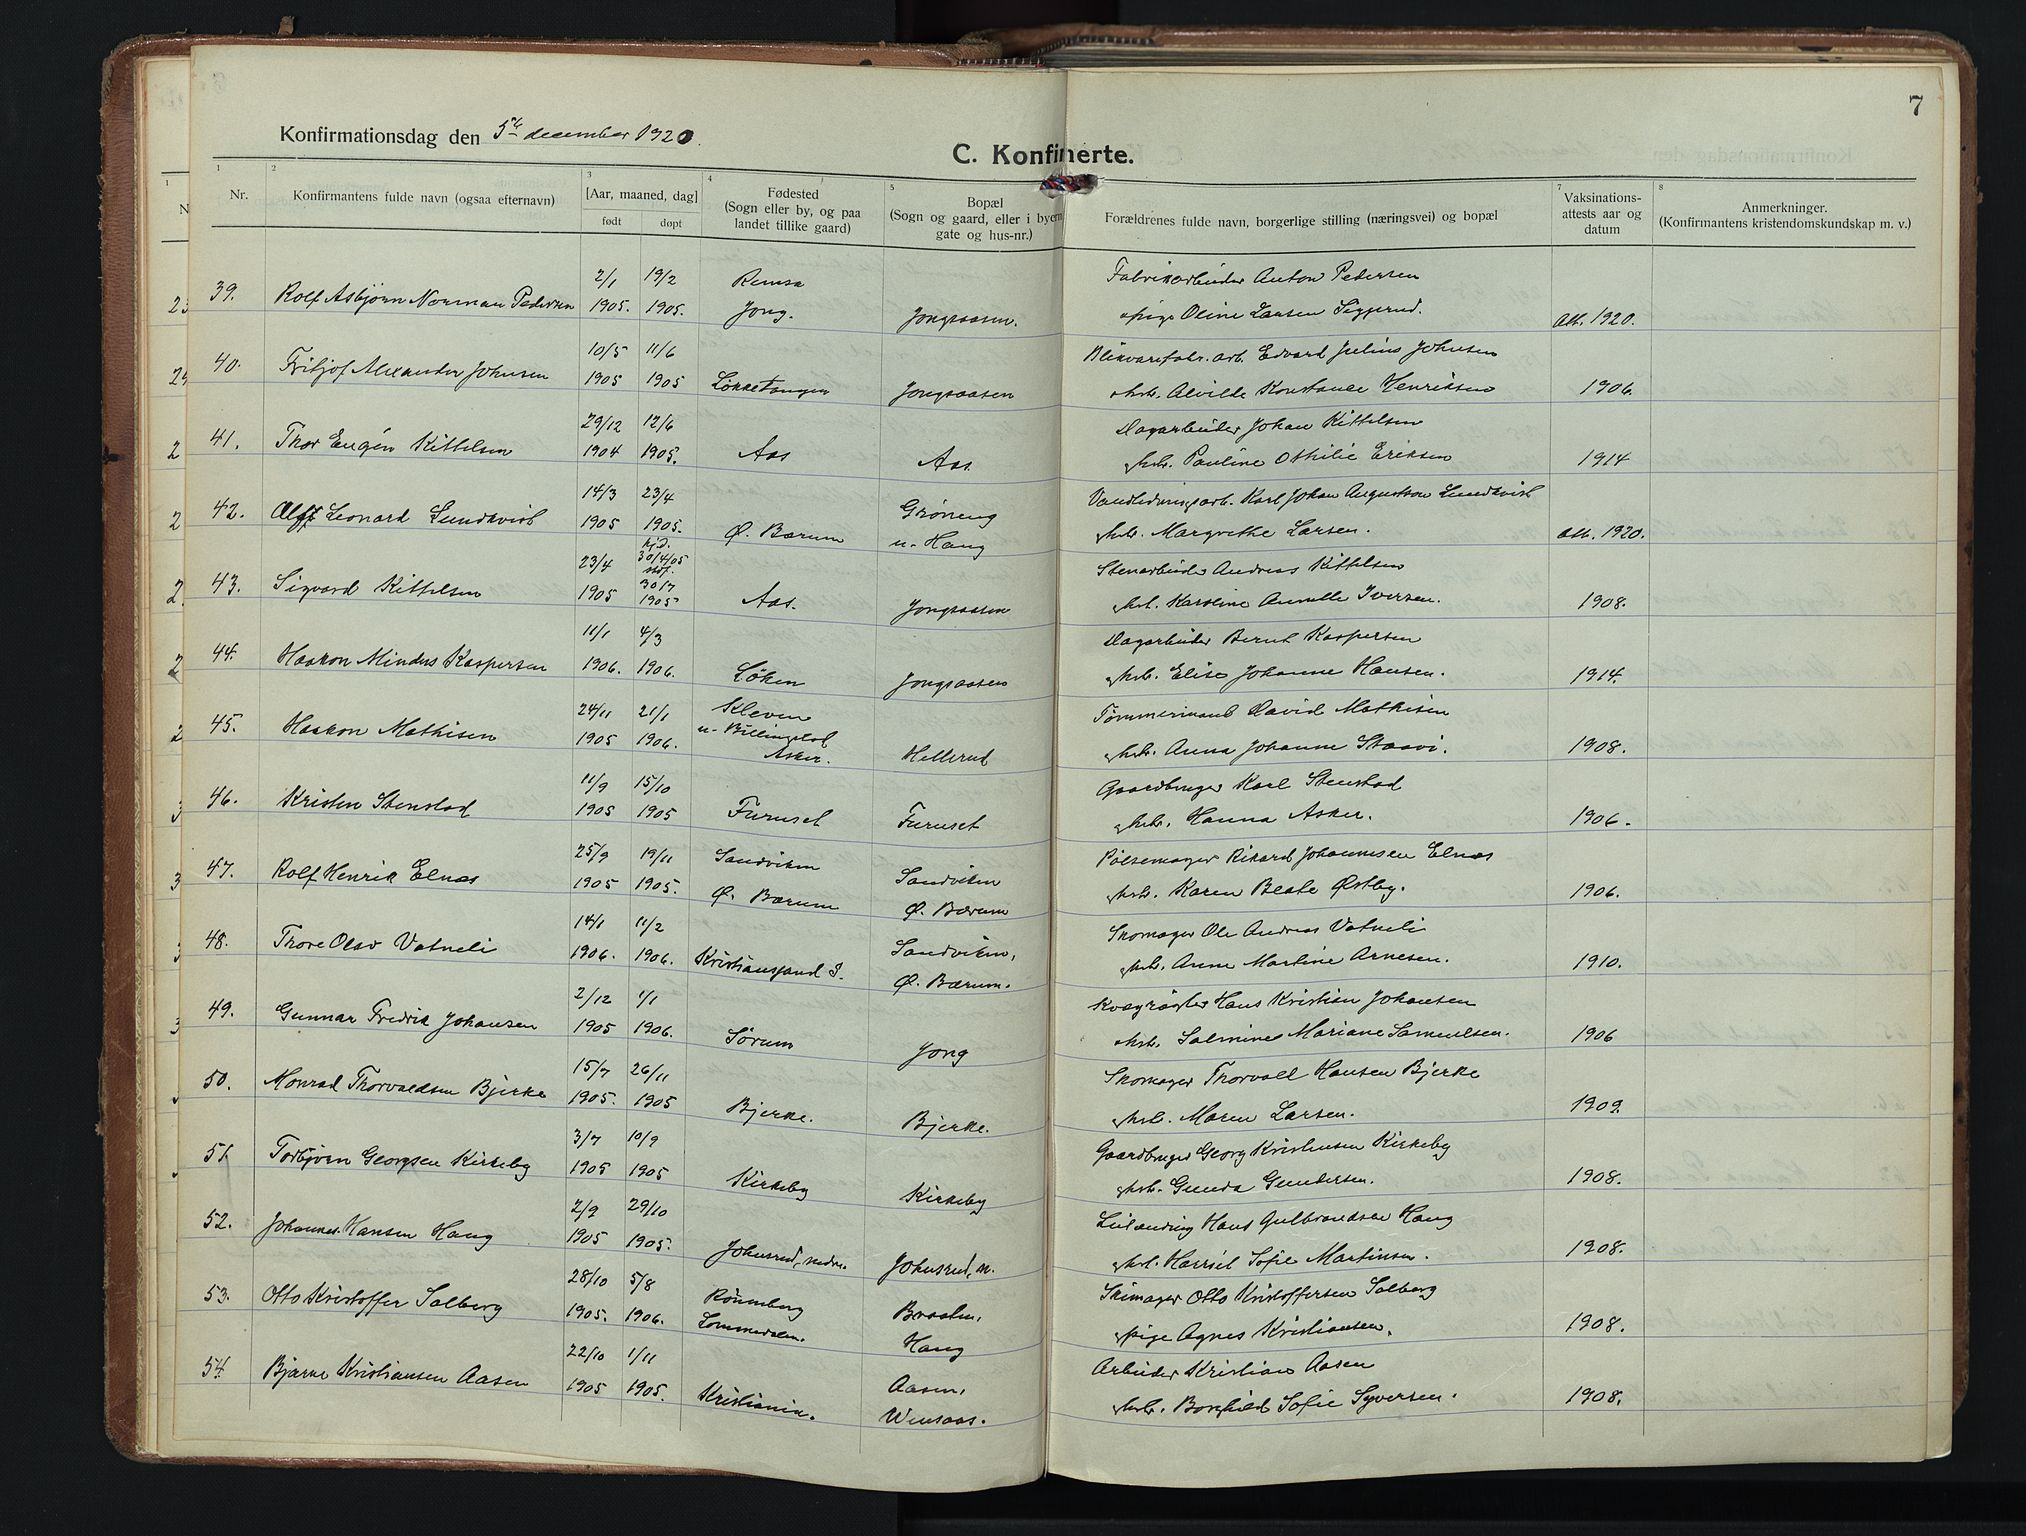 7
Konfirmationsdag den 5te december 1920.
C. Konfirmerte.
1 2 3 4 5 7 8
Nr.
Konfirmantens fulde navn (ogsaa efternavn)
[Aar, maaned, dag]
født døpt
Fødested
(Sogn eller by, og paa
landet tillike gaard)
Bopæl
(Sogn og gaard, eller i byern
gate og hus-nr.)
Forældrenes fulde navn, borgerlige stilling (næringsvei) og bopæl
Vaksinations-
attests aar og
datum
Anmerkninger.
(Konfirmantens kristendomskundskap m. v.)
39. 2/1 19/2 Fabrikarbeider Anton Pedersen
Rolf Asbjørn Norman Pedersen 1905. 1905. Jong. Jongsaasen. pige Oline Larsen Siggerud. Att. 1920.
40. 10/5 11/6 Blikvarefabr. arb. Edvard Julius Johnsen
Fritjof Alexander Johnsen 1905 1905 Løkketangen Jongsaasen Alvilde Konstance Henriksen 1906.
41. 29/12 12/6 Dagarbeider Johan Kittelsen
Thor Eugén Kittelsen 1904 1905. Aas Aas Pauline Othilie Eriksen 1914
42. 14/3 23/4 Grøneng Vandledningsarb. Karl Johan Augustson Lundkvist
Leonard Lundkvist 1905 1905. Ø. Bærum u. Haug Margrethe Larsen. Att. 1920.
43. 23/4 hjd. 30/4/05 stdf. Stenarbeider Andreas Kittelsen
Sigvard Kittelsen 1905 30/7 1905 Aas. Jongsaasen Karoline Iversen. 1908.
44. 11/1 4/3 Dagarbeider Bernt Kaspersen
Haakon Kaspersen 1906. 1906. Løken Jongsaasen Elise Johanne Hansen. 1914.
45. 24/11 21/1 Kleven Tømmermand David Mathisen
Haakon Mathisen 1905 1906. u. Billingstad Asker. Hellerud Anna Johanne 1908.
46. 11/9 15/10 Gaardbruger Karl Stenstad
Kristen Stenstad 1905 1905 Furuset Furuset Hanna Asker. 1906.
47. 25/9 19/11 Sandviken Sandviken Pølsemager Rikard Johannesen Elnæs
Rolf Henrik Elnæs 1905 1905. Ø. Bærum Ø. Bærum Karen Beate Østby. 1906.
48. 14/1 11/2 Sandviken, Skomager Ole Andreas Vatneli
Thore Olav Vatneli 1906. 1906. Kristianssand S. Ø. Bærum. Anne Martine Arnesen. 1910.
49. 2/12 1/1 Kvægrøgter Hans Kristian Johansen
Gunnar Fredrik Johansen 1905 1906. Sørum Jong Mariane Samuelsen. 1906
50. 15/7 26/11 Skomager Thorvald Hansen Bjerke
Monrad Thorvaldsen Bjerke 1905. 1905 Bjerke. Bjerke. Maren Larsen. 1909.
51. 3/7 10/9 Gaardbruger Georg Kristensen Kirkeby
Torbjørn Georgsen Kirkeby 1905 1905 Kirkeby Kirkeby Gunda Gundersen. 1908.
52. 2/9 29/10 Hans Gulbrandsen Haug
Johannes Hansen Haug 1905 1905. Johnsrud, nedre. Johnsrud, n. Sofie Martinsen. 1908.
53. 28/10 5/8 Skimager Otto Kristoffersen Solberg
Otto Kristoffer Solberg 1905. 1906. Lommedalen. Braaten, Haug pige Agnes Kristiansen. 1908.
54. 22/10 1/11 Arbeider Kristian Aasen
Bjarne Kristiansen Aasen 1905 1905. Kristiania. Aasen, Wensaas. Sofie Syversen. 1908.